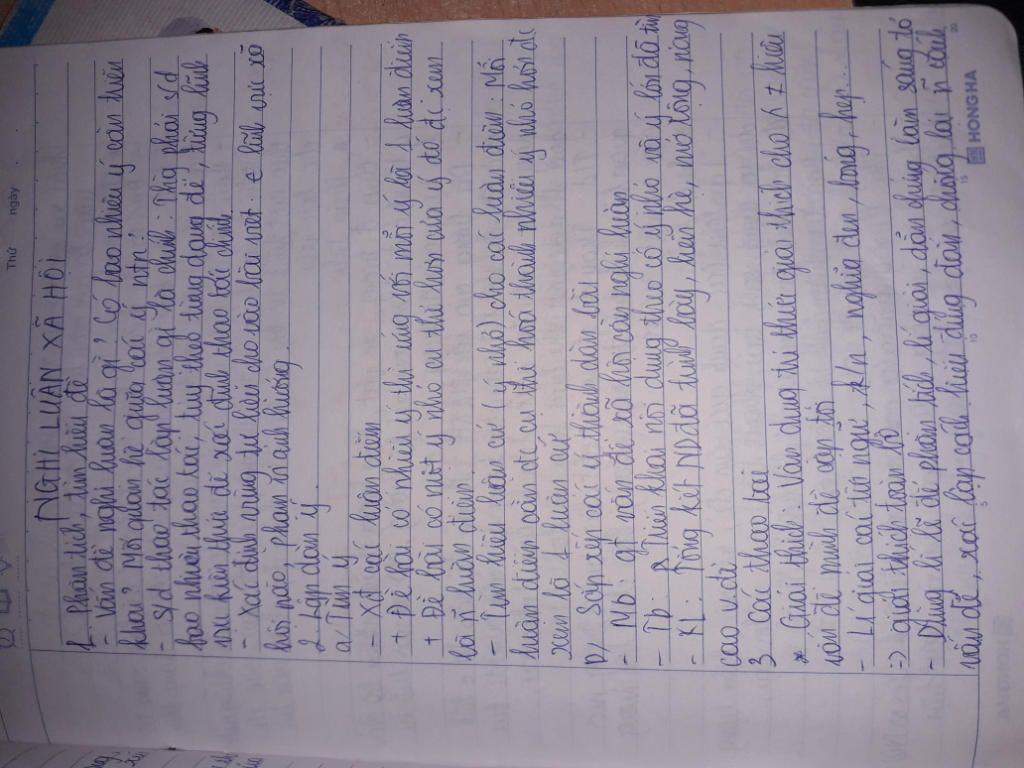 Thứ
ngày
NGHỊ LUẬN XÃ HỘI
1. Phân tích, tìm hiểu đề
- Vấn đề nghị luận là gì? Có bao nhiêu ý cần triển
khai? Mối quan hệ giữa các ý ntn?
- S/d thao tác lập luận gì là chính: Thg phải s/d
bao nhiêu thao tác, tuỳ theo từng dạng đề, từng lĩnh
vực kiến thức để xác định thao tác chính
- Xác định vùng tư liệu cho sào bài viết: ∈ lĩnh vực xã
hội nào, phạm vi ảnh hưởng.
2. Lập dàn ý
a/ Tìm ý
- Xđ các luận điểm
+ Đề bài có nhiều ý thì ứng với mỗi ý là 1 luận điểm
+ Đề bài có một ý nhỏ cụ thể hơn của ý đó đc xem
là n luận điểm
- Tìm kiếm luận cứ (ý nhỏ) cho các luận điểm: Mỗi
luận điểm cần đc cụ thể hoá thành nhiều ý nhỏ hơn đc
xem là 1 luận cứ
b/ Sắp xếp các ý thành dàn bài
- MB: gt vấn đề xã hội cần nghị luận
- TB: Triển khai nội dung theo có ý nhỏ và ý lớn đã tìm
- KL: Tổng kết ND đã trình bày, liên hệ, mở rộng, nâng
cao v.đề
3. Các thao tác
* Giải thích: Vận dụng tri thức giải thích cho
vấn đề mình đề cập tới
- Lí giải các từ ngữ, k/n, nghĩa đen, bóng, hẹp...
=> giải thích toàn bộ
- Dùng lí lẽ để phân tích, lí giải, dẫn chứng làm sáng tỏ
vấn đề, xác lập cách hiểu đúng đắn, chống lại n cách
5
10
15
20
HONG HA